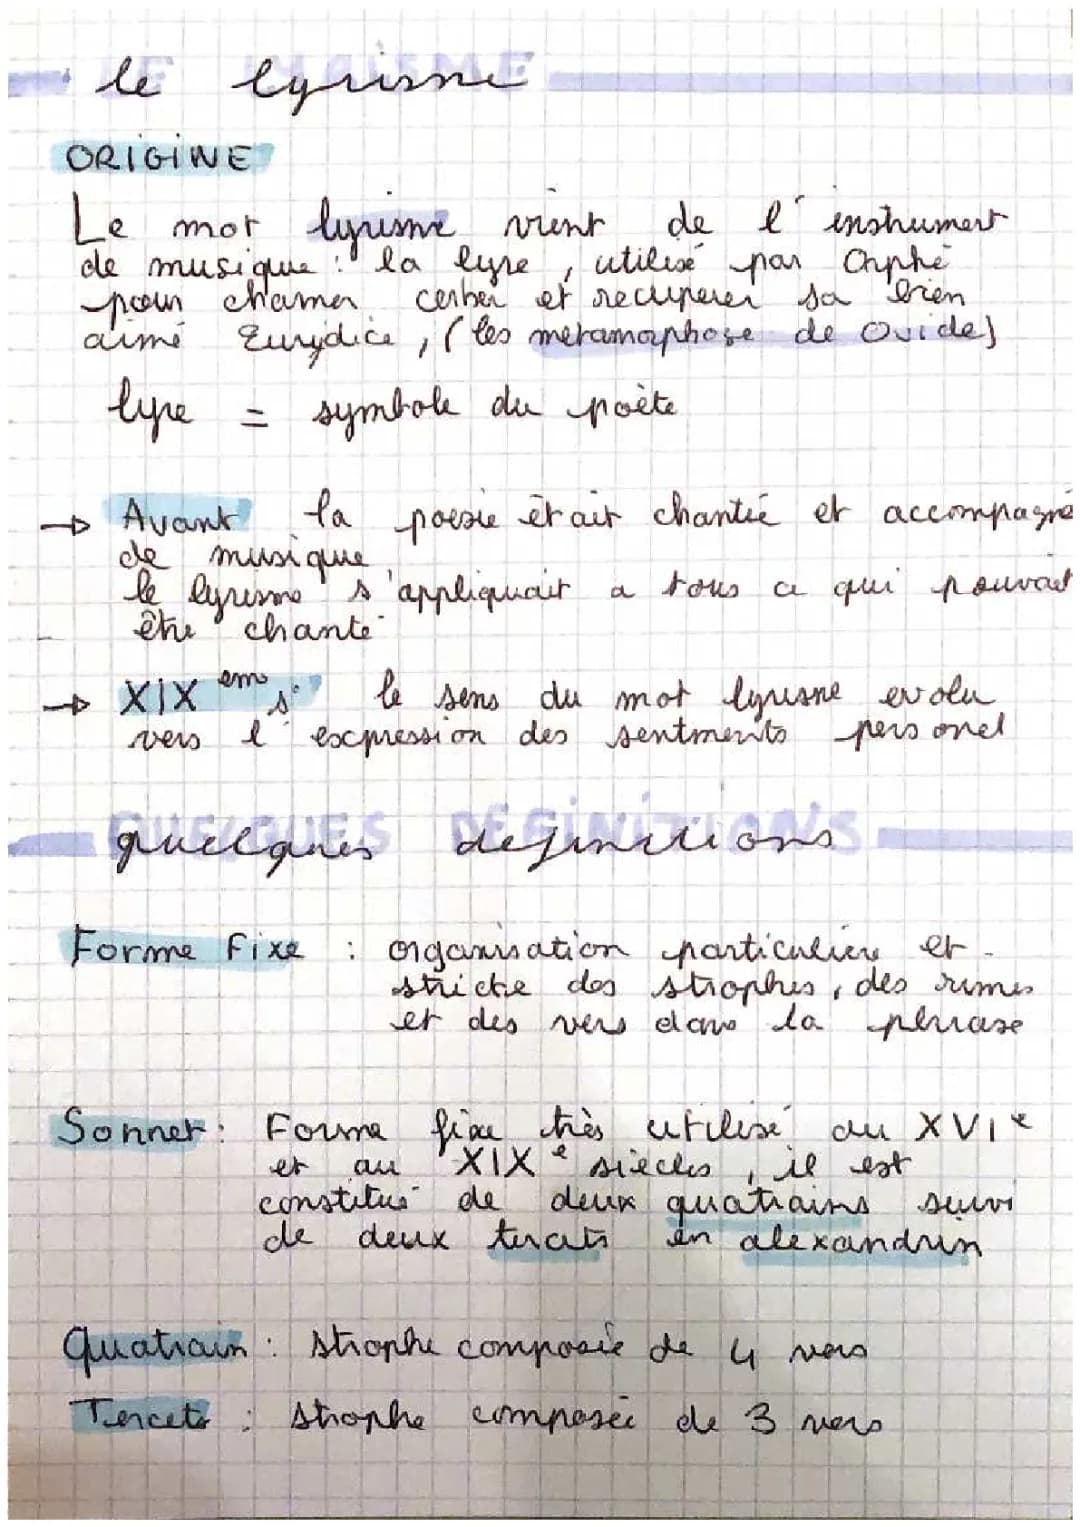 le lyrisme
ORIGINE
Le mot lyrisme vient de l'instrument
de musique : la lyre, utilisé par Orphé
pour chamer cerber et recuperer sa bien
aimé Eurydice, (les métamorphose de Ovide)
lyre = symbole du poète
→ Avant la poesie était chantée et accompagné
de musique
le lyrisme s'appliquait a tous ce qui pouvait
être chanté
→ XIX em s. le sens du mot lyrisme evolu
vers l'expression des sentments personel
quelques definitions
Forme Fixe : organisation particulière et
stricte des strophes, des rimes
et des vers dans la phrase
Sonnet : Forme fixe très utilisé au XVIe
et au XIXe siècles, il est
constitué de deux quatrains suivi
de deux tercets en alexandrin
Quatrain : strophe composée de 4 vers
Tercets : strophe composée de 3 vers